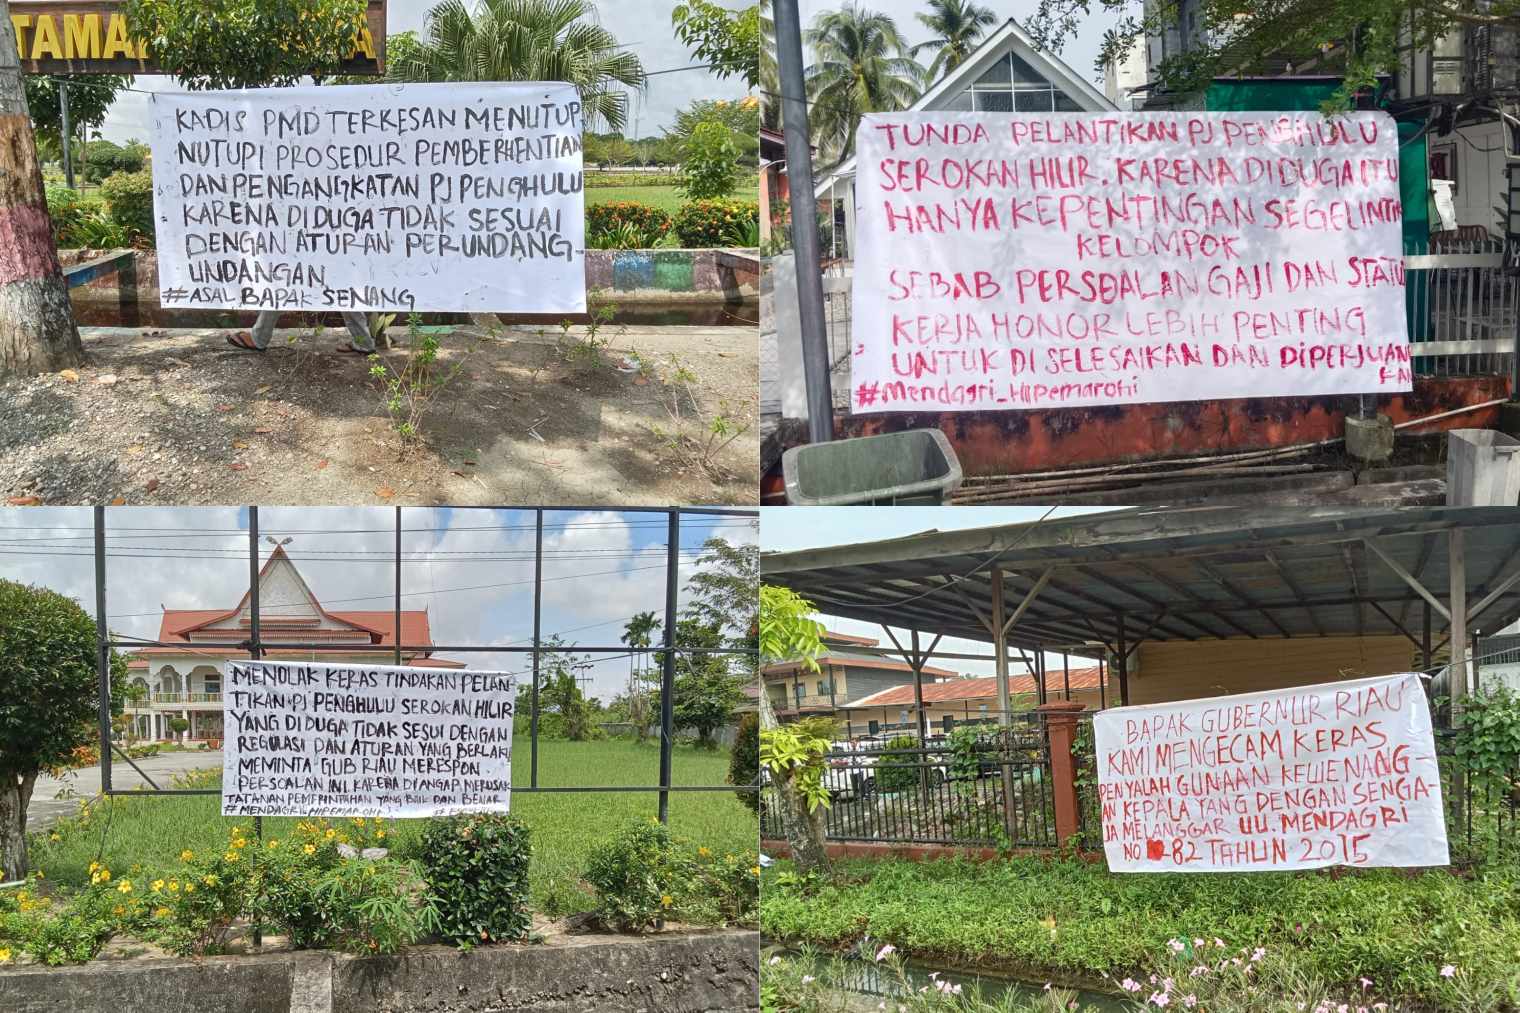 TAMAN
KADIS PMD TERKESAN MENUTUP
NUTUPI PROSEDUR PEMBERHENTIAN
DAN PENGANGKATAN PJ PENGHULU
KARENA DI DUGA TIDAK SESUAI
DENGAN ATURAN PERUNDANG-
UNDANGAN
#ASAL BAPAK SENANG
TUNDA PELANTIKAN PJ PENGHULU
SEROKAN HILIR. KARENA DI DUGA ITU
HANYA KEPENTINGAN SEGELINTIR
KELOMPOK
SEBAB PERSOALAN GAJI DAN STATU
KERJA HONOR LEBIH PENTING
UNTUK DI SELESAIKAN DAN DIPERJUANG
KAN
#Mendagri_HIpemarohi
MENOLAK KERAS TINDAKAN PELAN-
TIKAN PJ PENGHULU SEROKAN HILIR
YANG DI DUGA TIDAK SESUI DENGAN
REGULASI DAN ATURAN YANG BERLAKU
MEMINTA GUB RIAU MERESPON
PERSOALAN INI KARENA DIANGAP MERUSAK
TATANAN PEMERINTAHAN YANG BAIK DAN BENAR
#MENDAGRI_HIPEMAROHI
BAPAK GUBERNUR RIAU
KAMI MENGECAM KERAS
PENYALAH GUNAAN KEWENANG-
AN KEPALA YANG DENGAN SENGA-
JA MELANGGAR UU. MENDAGRI
NO 82 TAHUN 2015